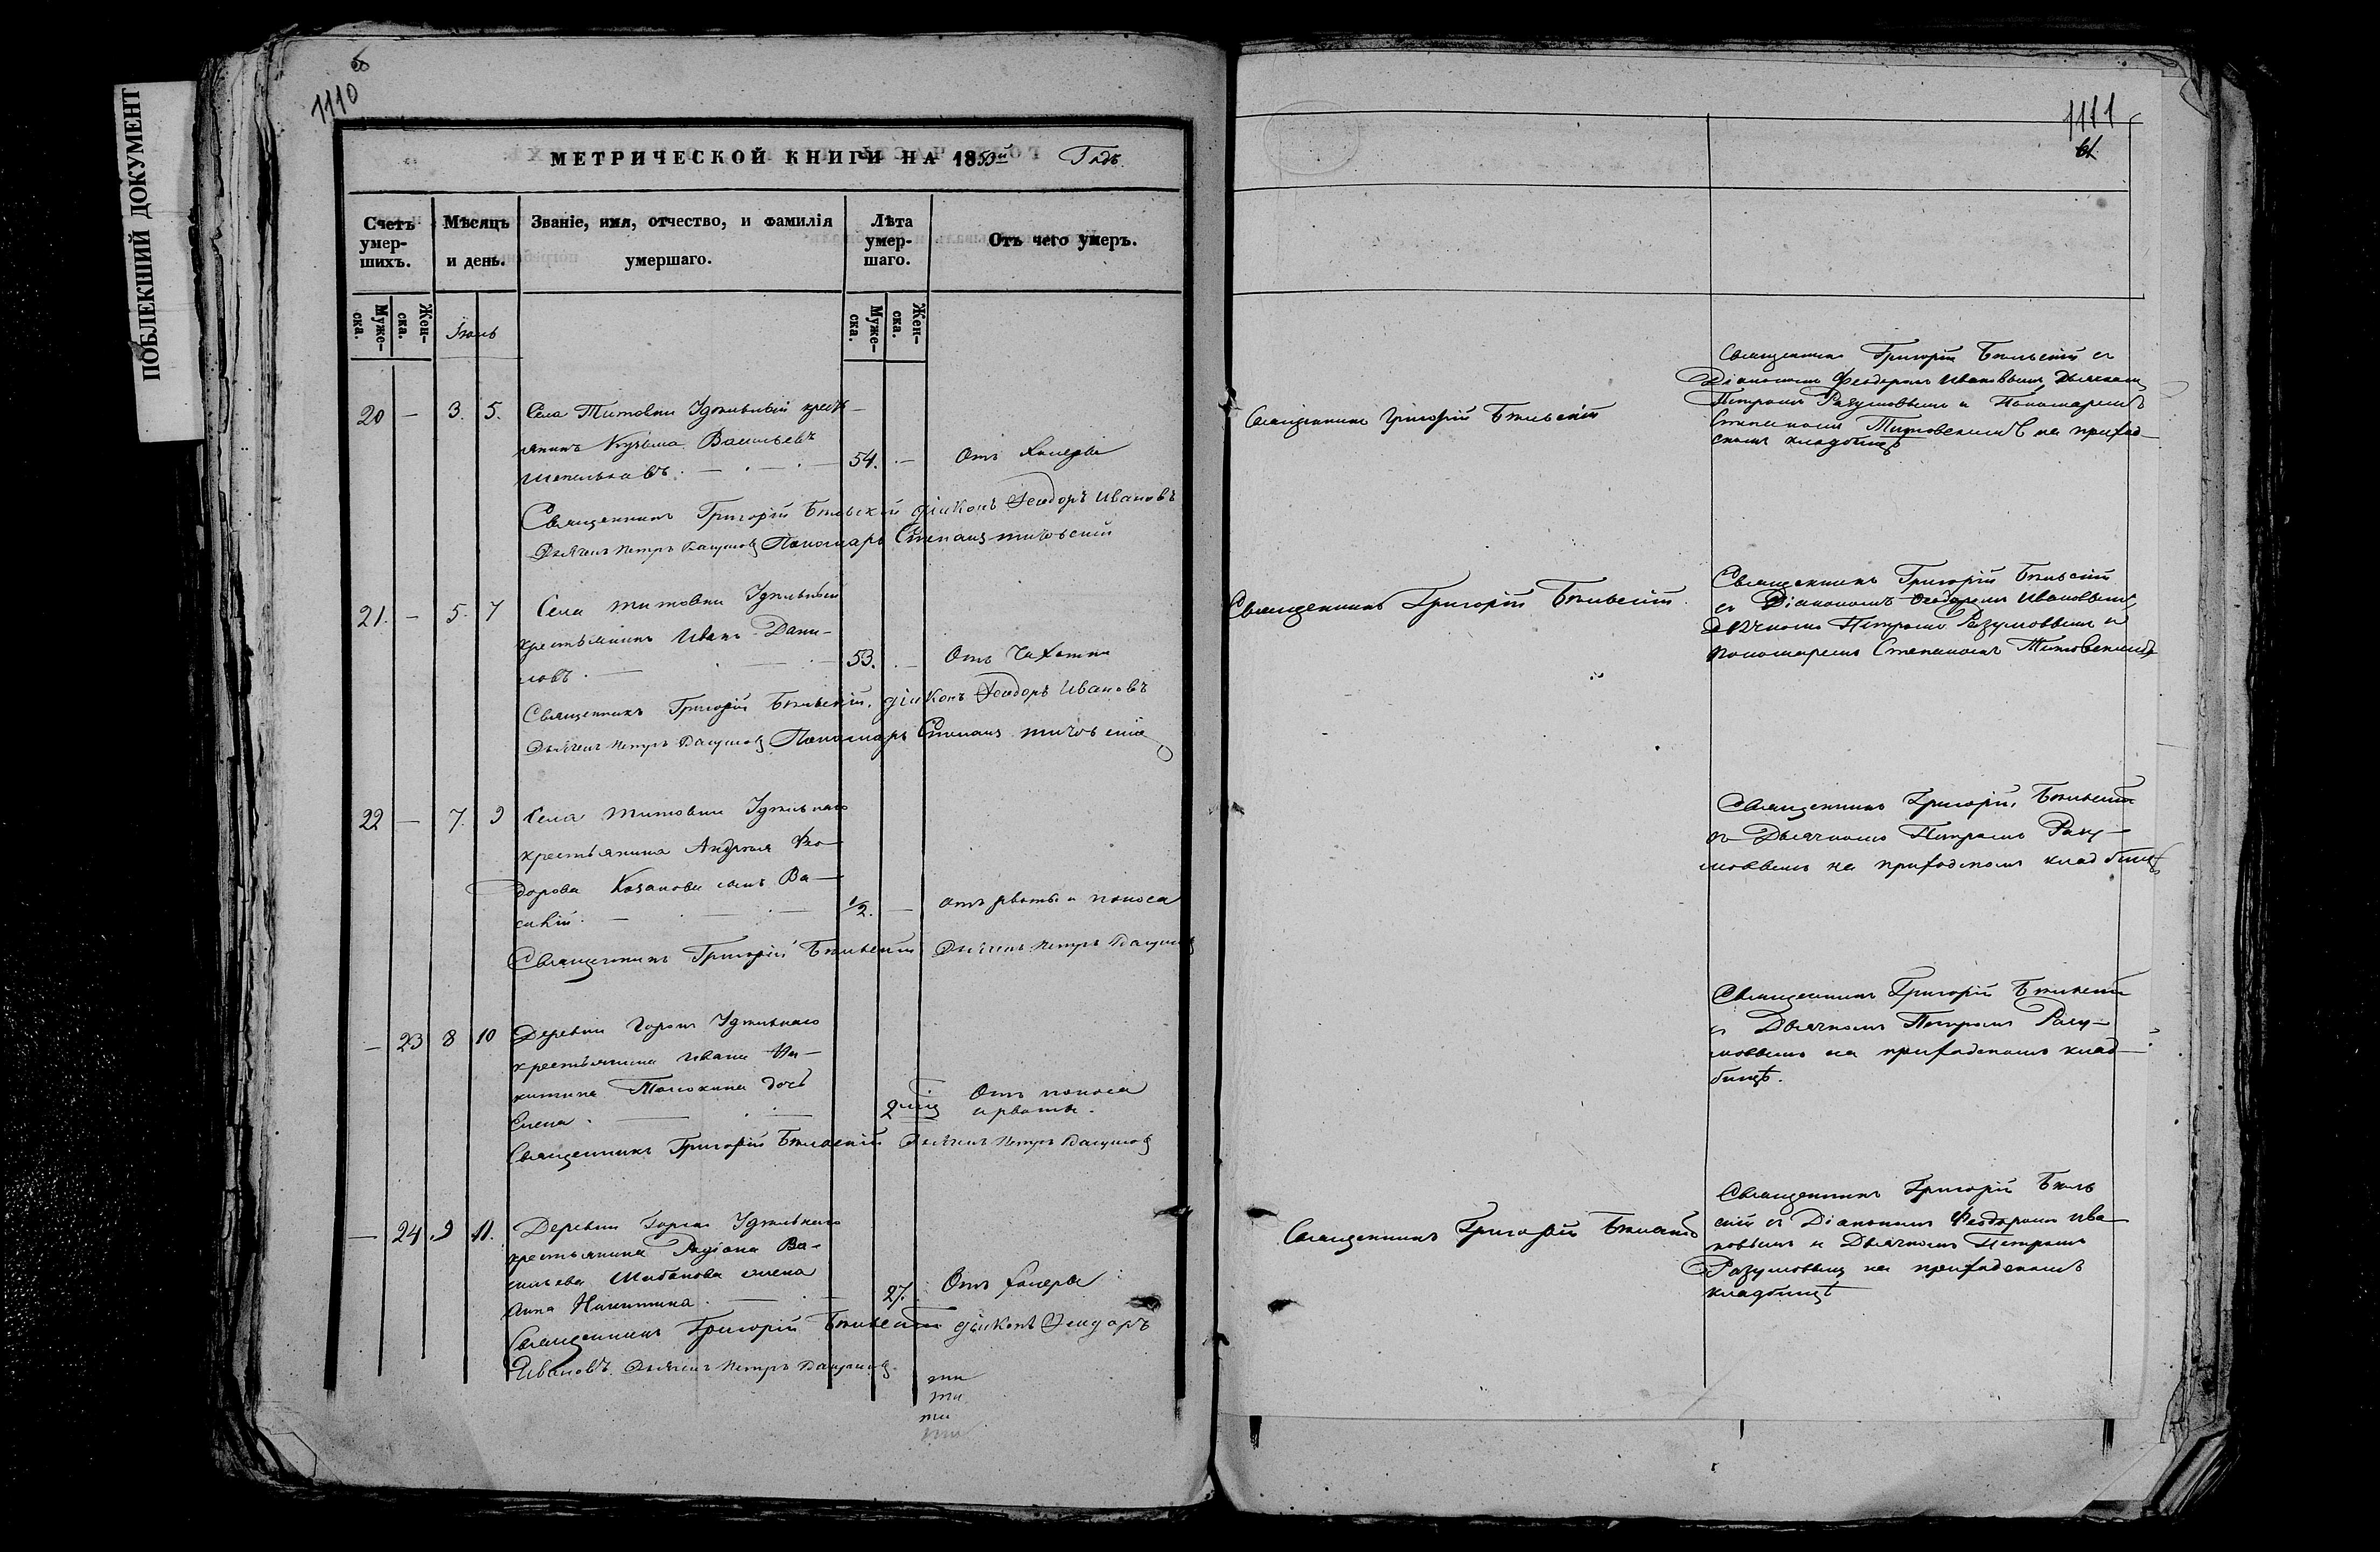 ПОБЛЕКШИЙ ДОКУМЕНТ
1110
МЕТРИЧЕСКОЙ КНИГИ НА 1853й Годъ.
Счетъ умер-шихъ.
Мѣсяцъ и день.
Званіе, имя, отчество, и фамилія умершаго.
Лѣта умер-шаго.
Отъ чего умеръ.
Муже-ска.
Жен-ска.
Муже-ска.
Жен-ска.
20 — 3. 5. Села Титовки Удѣльный кресть-
янинъ Кузьма Васильевъ
54. — Отъ холеры
Священникъ Григорій Бѣльскій діаконъ Феодоръ Ивановъ
Дьячекъ Петръ Разумовъ Пономарь Степанъ Титовскій
21. — 5. 7 Села Титовки Удѣльный
крестьянинъ Иванъ Дани-
ловъ. — 53. — Отъ Чахотки
Священникъ Григорій Бѣльскій, діаконъ Феодоръ Ивановъ
Дьячекъ Петръ Разумовъ Пономарь Степанъ Титовскій
22 — 7. 9 Села Титовки Удѣльнаго
крестьянина Андрея Фео-
дорова Казакова сынъ Ва-
силій. — 1/2. — отъ рвоты и поноса
Священникъ Григорій Бѣльскій Дьячекъ Петръ Разумовъ
— 23 8 10 Деревни Горокъ Удѣльнаго
крестьянина Ивана Ни-
китина дочь
Елена. — Отъ поноса
и рвоты.
Священникъ Григорій Бѣльскій Дьячекъ Петръ Разумовъ
— 24 9 11. Деревни Горокъ Удѣльнаго
крестьянина Родіона Ва-
сильева Шибанова жена
Анна Никитина. — 27. Отъ холеры
Священникъ Григорій Бѣльскій діаконъ Феодоръ
Ивановъ. Дьячекъ Петръ Разумовъ.
ти
ти
ти
1111
61
Священникъ Григорій Бѣльскій
Священникъ Григорій Бѣльскій съ
Діакономъ Феодоромъ Ивановымъ, Дьячкомъ
Петромъ Разумовымъ и Пономаремъ
Степаномъ Титовскимъ на приход-
скомъ кладбищѣ
Священникъ Григорій Бѣльскій.
Священникъ Григорій Бѣльскій
съ Діакономъ Феодоромъ Ивановымъ,
дьячкомъ Петромъ Разумовымъ и
пономаремъ Степаномъ Титовскимъ
Священникъ Григорій Бѣльскій
съ Дьячкомъ Петромъ Разу-
мовымъ на приходскомъ кладбищѣ
Священникъ Григорій Бѣльскій
съ Дьячкомъ Петромъ Разу-
мовымъ на приходскомъ клад-
бищѣ.
Священникъ Григорій Бѣльскій
Священникъ Григорій Бѣль
скій съ Діакономъ Феодоромъ Ива-
новымъ и Дьячкомъ Петромъ
Разумовымъ на приходскомъ
кладбищѣ